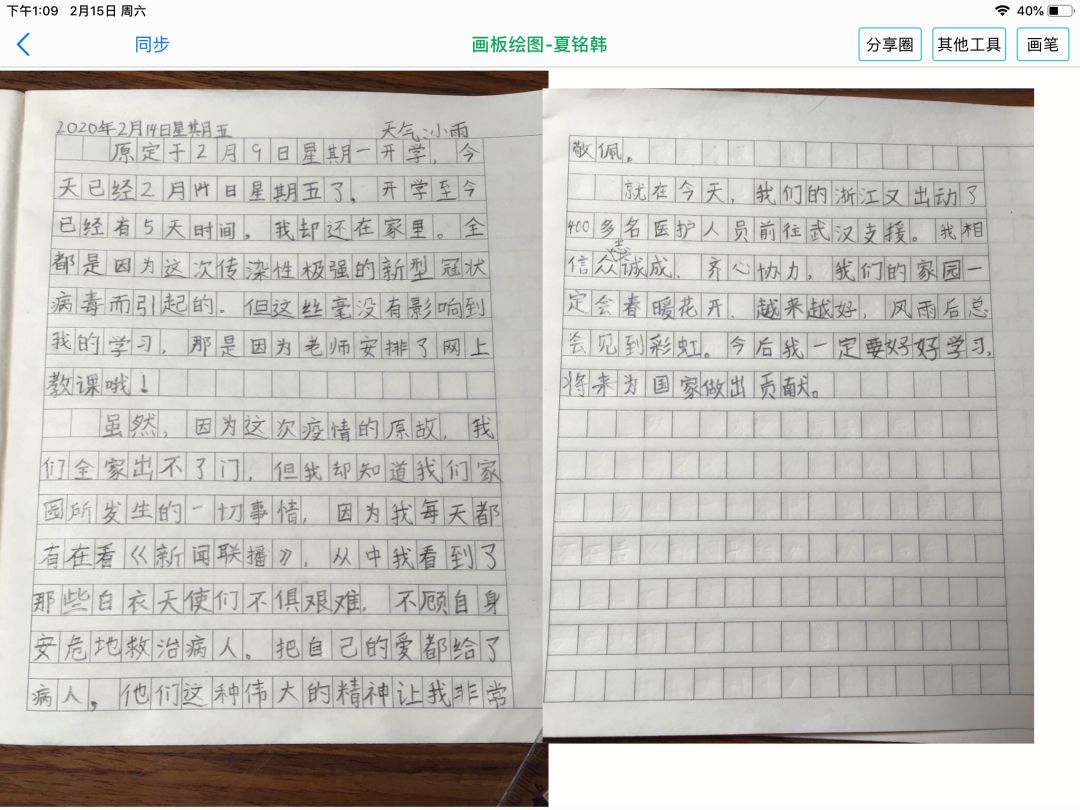 下午1:09 2月15日 周六
40%
同步
画板绘图-夏铭韩
分享圈
其他工具
画笔
2020年2月14日星期五 天气:小雨
原定于2月9日星期一开学,今
天已经2月14日星期五了,开学至今
已经有5天时间,我却还在家里。全
都是因为这次传染性极强的新型冠状
病毒而引起的.但这丝毫没有影响到
我的学习,那是因为老师安排了网上
教课哦!
虽然,因为这次疫情的原故,我
们全家出不了门,但我却知道我们家
园所发生的一切事情,因为我每天都
有在看《新闻联播》,从中我看到了
那些白衣天使们不俱艰难,不顾自身
安危地救治病人。把自己的爱都给了
病人,他们这种伟大的精神让我非常
敬佩。
就在今天,我们的浙江又出动了
400多名医护人员前往武汉支援。我相
信众志诚成,齐心协力,我们的家园一
定会春暖花开,越来越好,风雨后总
会见到彩虹。今后我一定要好好学习,
将来为国家做出贡献。